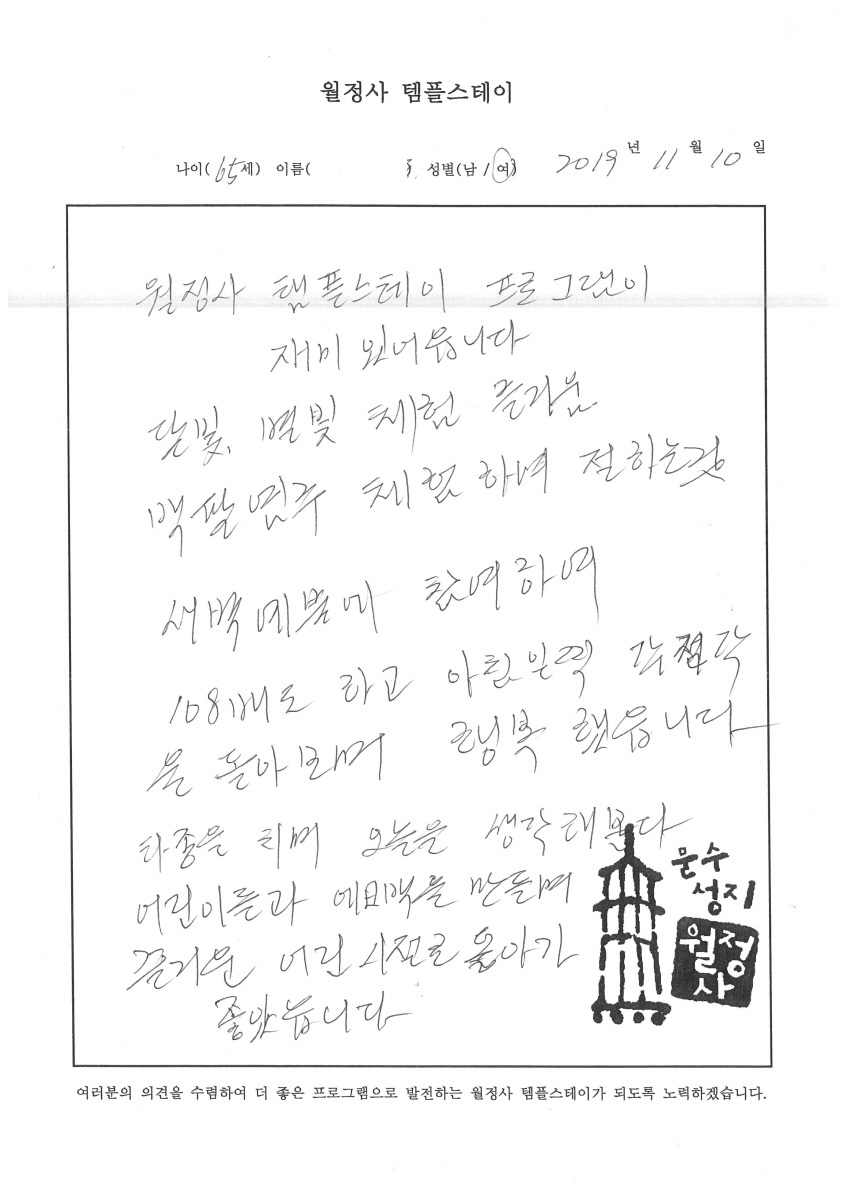 월정사 템플스테이
나이(65세) 이름( ) 성별(남/여) 2019년 11월 10일
월정사 템플스테이 프로그램이
재미 있어읍니다
달빛, 별빛 체험 즐거움
백팔염주 체험 하며 절하는것
새벽예불에 참여하여
108배도 하고 아침일찍
을 돌아보며 행복 했읍니다
타종을 치며 오늘을 생각해본다
어린이들과 만들며
즐거운 어린시절로 돌아가
좋았습니다
문수
성지
월정
사
여러분의 의견을 수렴하여 더 좋은 프로그램으로 발전하는 월정사 템플스테이가 되도록 노력하겠습니다.